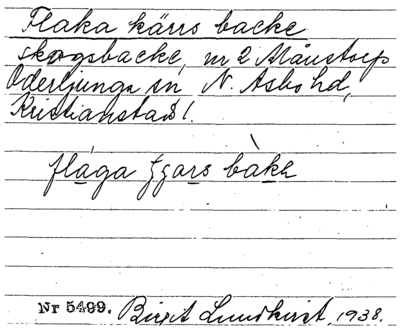 Flaka kärrs backe
skogsbacke, nr 2 Månstorp
Oderljunga sn N. Åsbo hd,
Kristianstads l.
flága ʒʒars bàkh
Nr 5499. Birgit Lundkvist, 1938.